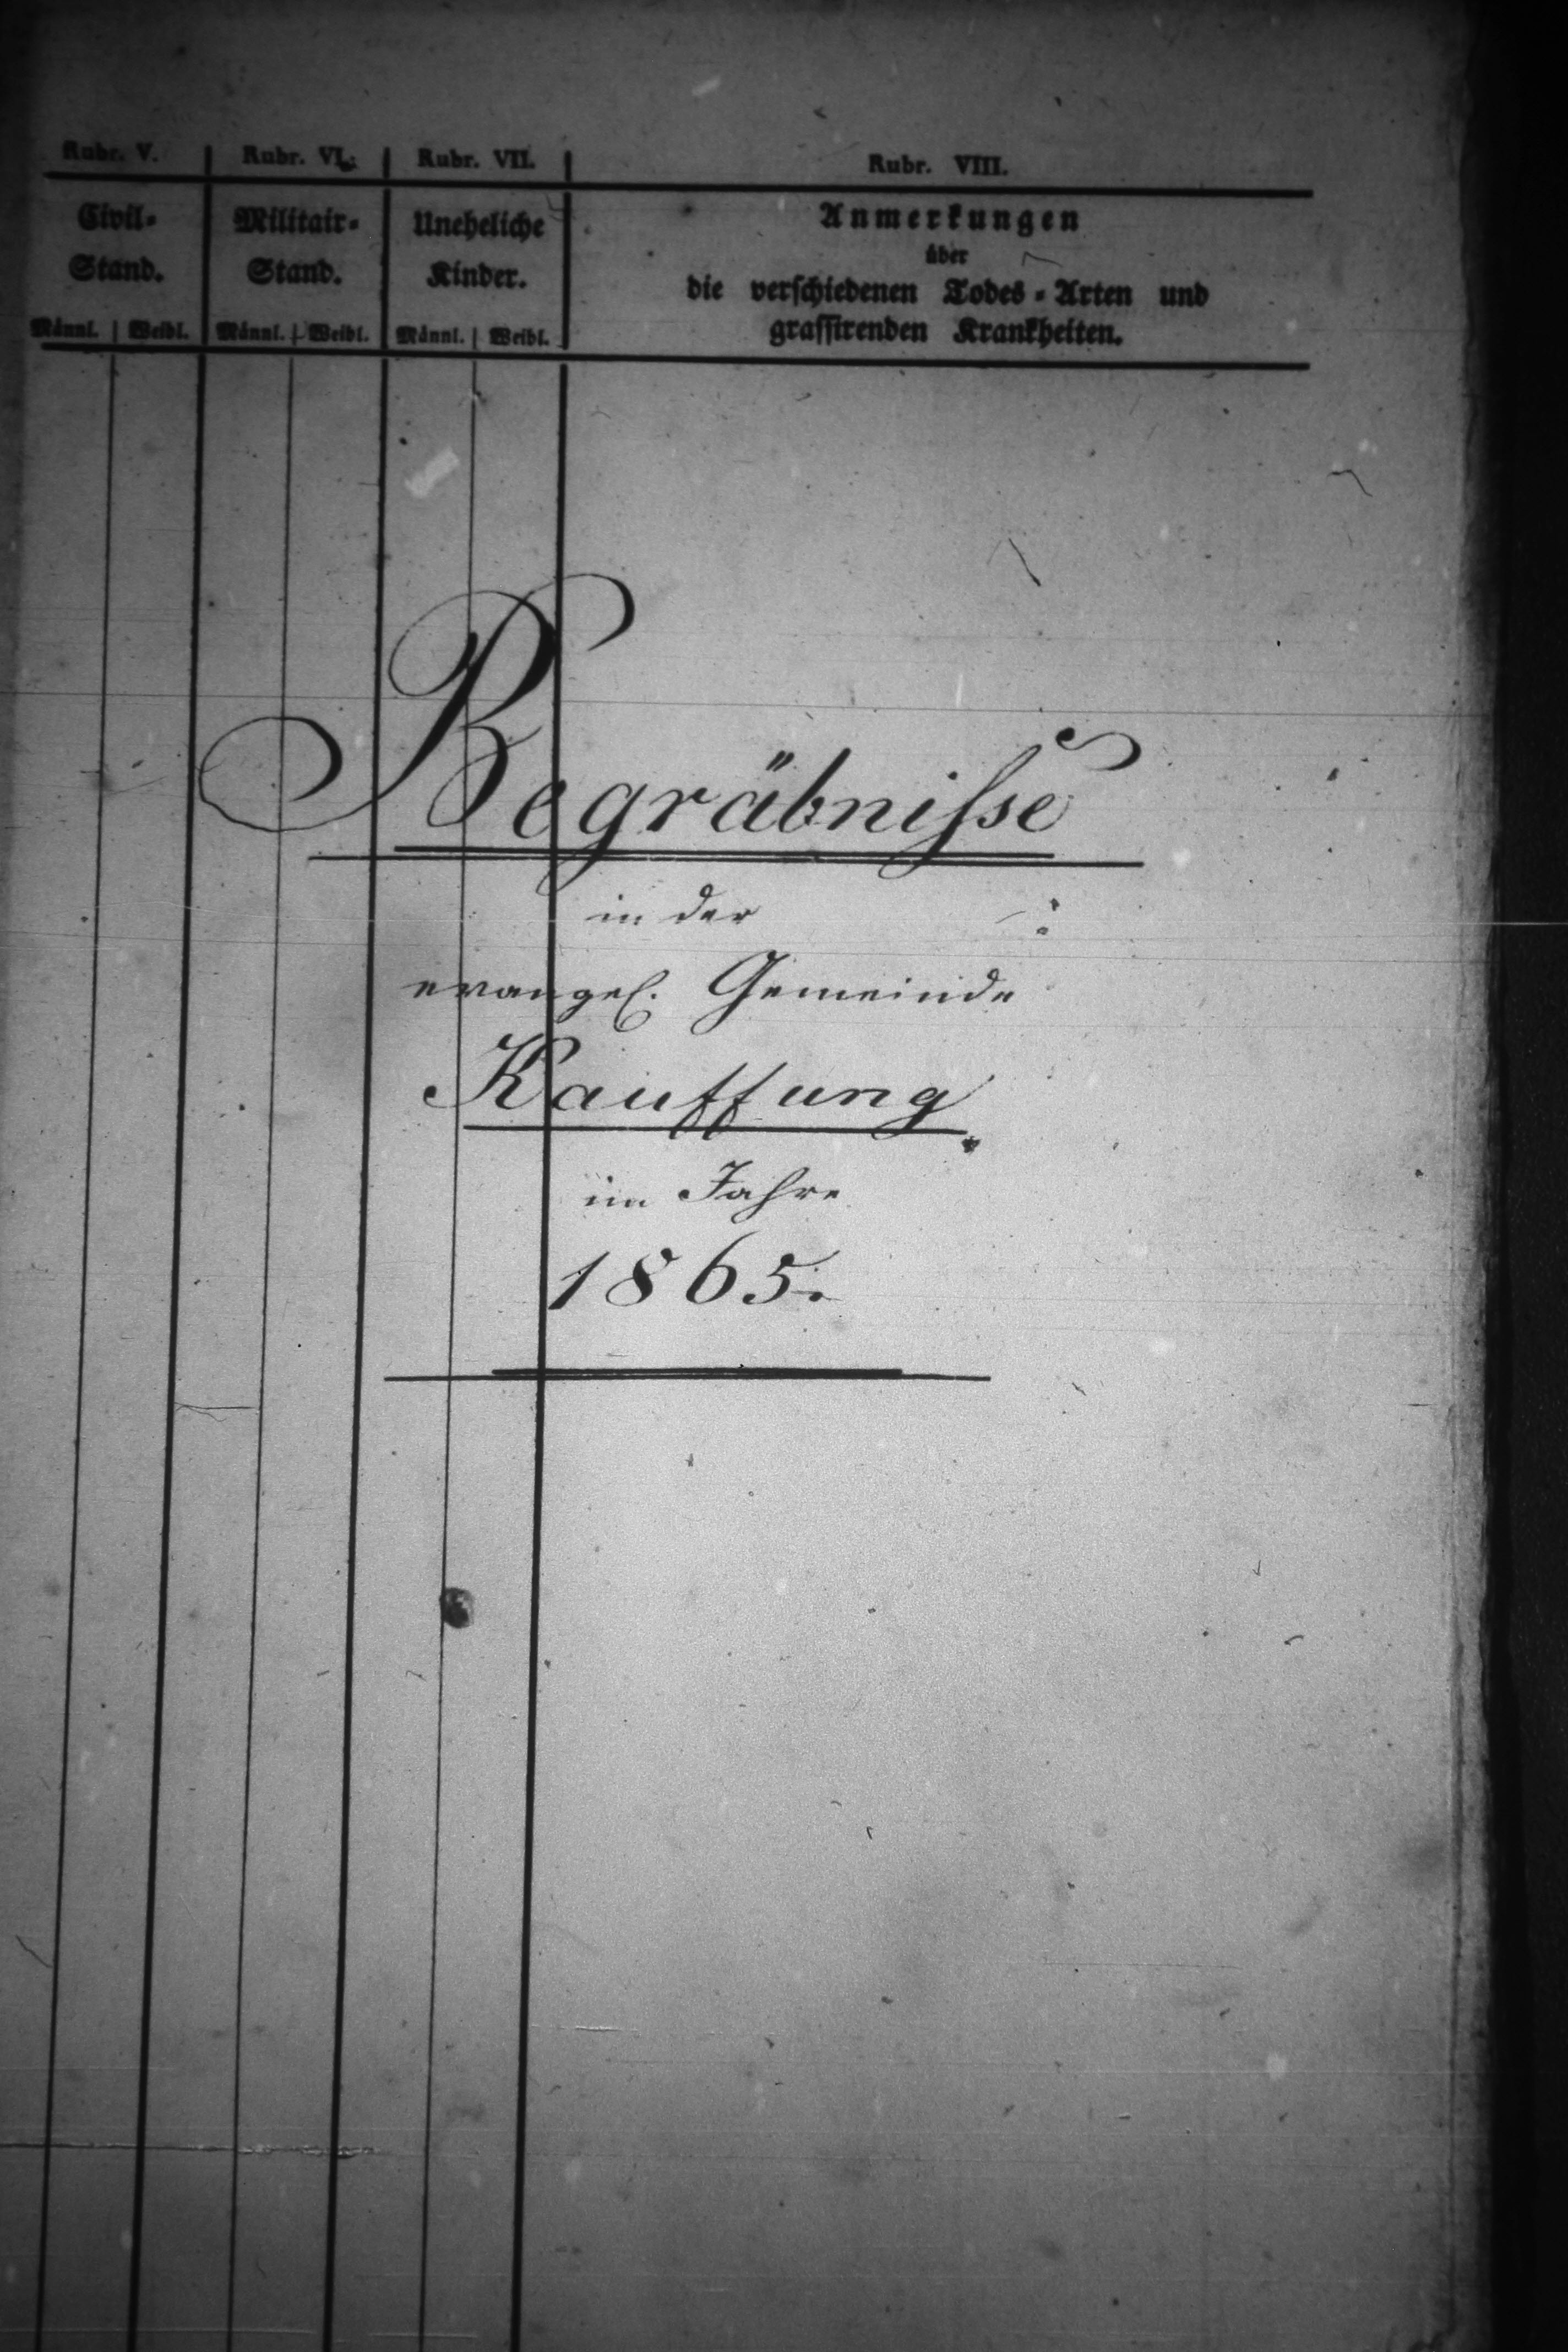 Rubr. V. Rubr. VI. Rubr. VII. Rubr. VIII.
Civil- Militair- Uneheliche Anmerkungen
über
Stand. Stand. Kinder. die verschiedenen Todes-Arten und
Männl. Weibl. Männl. Weibl. Männl. Weibl. grassirenden Krankheiten.
Begräbnisse
in der
evangel. Gemeinde
Kauffung
im Jahre
1865.